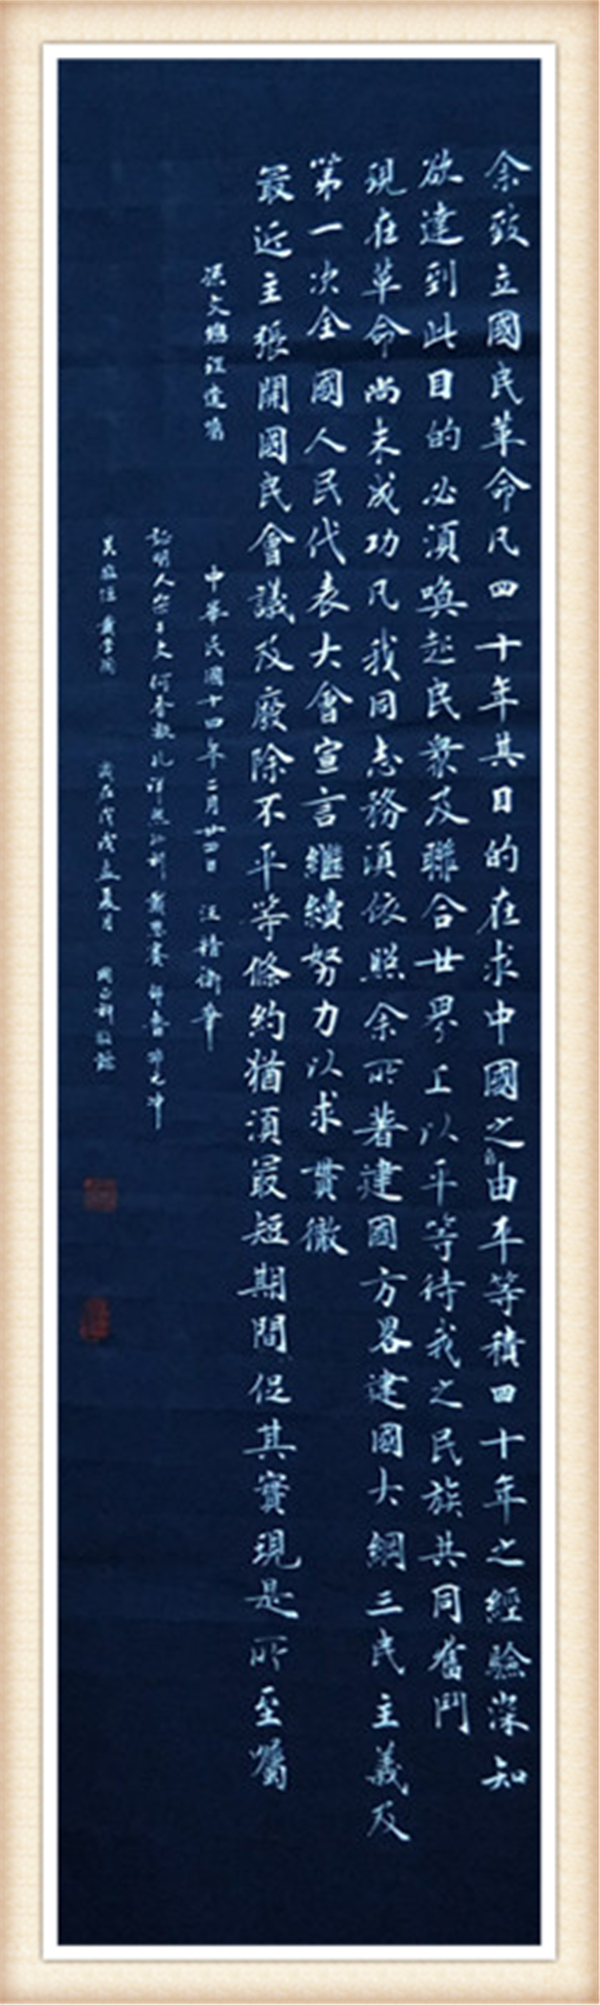 余致立國民革命凡四十年其目的在求中國之自由平等積四十年之經驗深知
欲達到此目的必須喚起民衆及聯合世界上以平等待我之民族共同奮鬥
現在革命尚未成功凡我同志務須依照余所著建國方畧建國大綱三民主義及
第一次全國人民代表大會宣言繼續努力以求貫徹
最近主張開國民會議及廢除不平等條約猶須最短期間促其實現是所至囑
孫文總理遺囑
中華民國十四年二月廿四日 汪精衛筆
証明人宋子文何香凝孔祥熙 戴恩賽 鄒魯